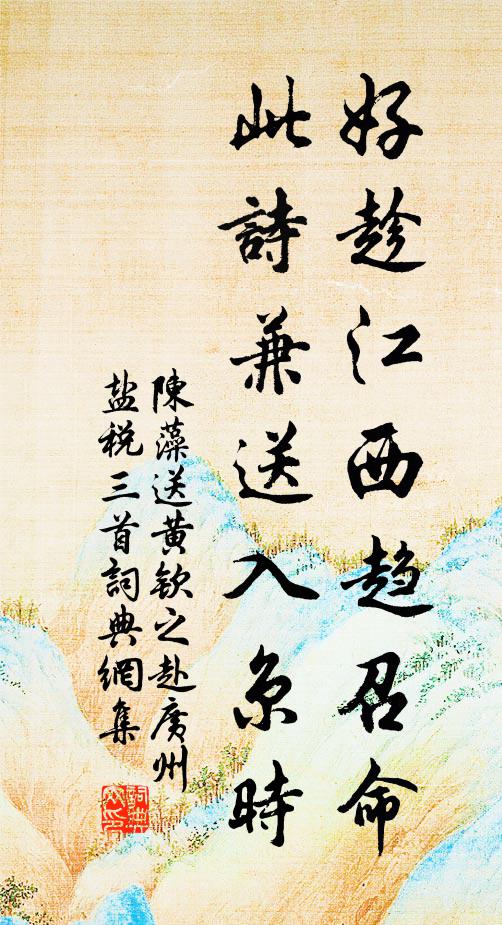 好趁江西趋召命
此詩兼送入京時
陳藻送黄钦之赴廣州
盐税三首詞典網集